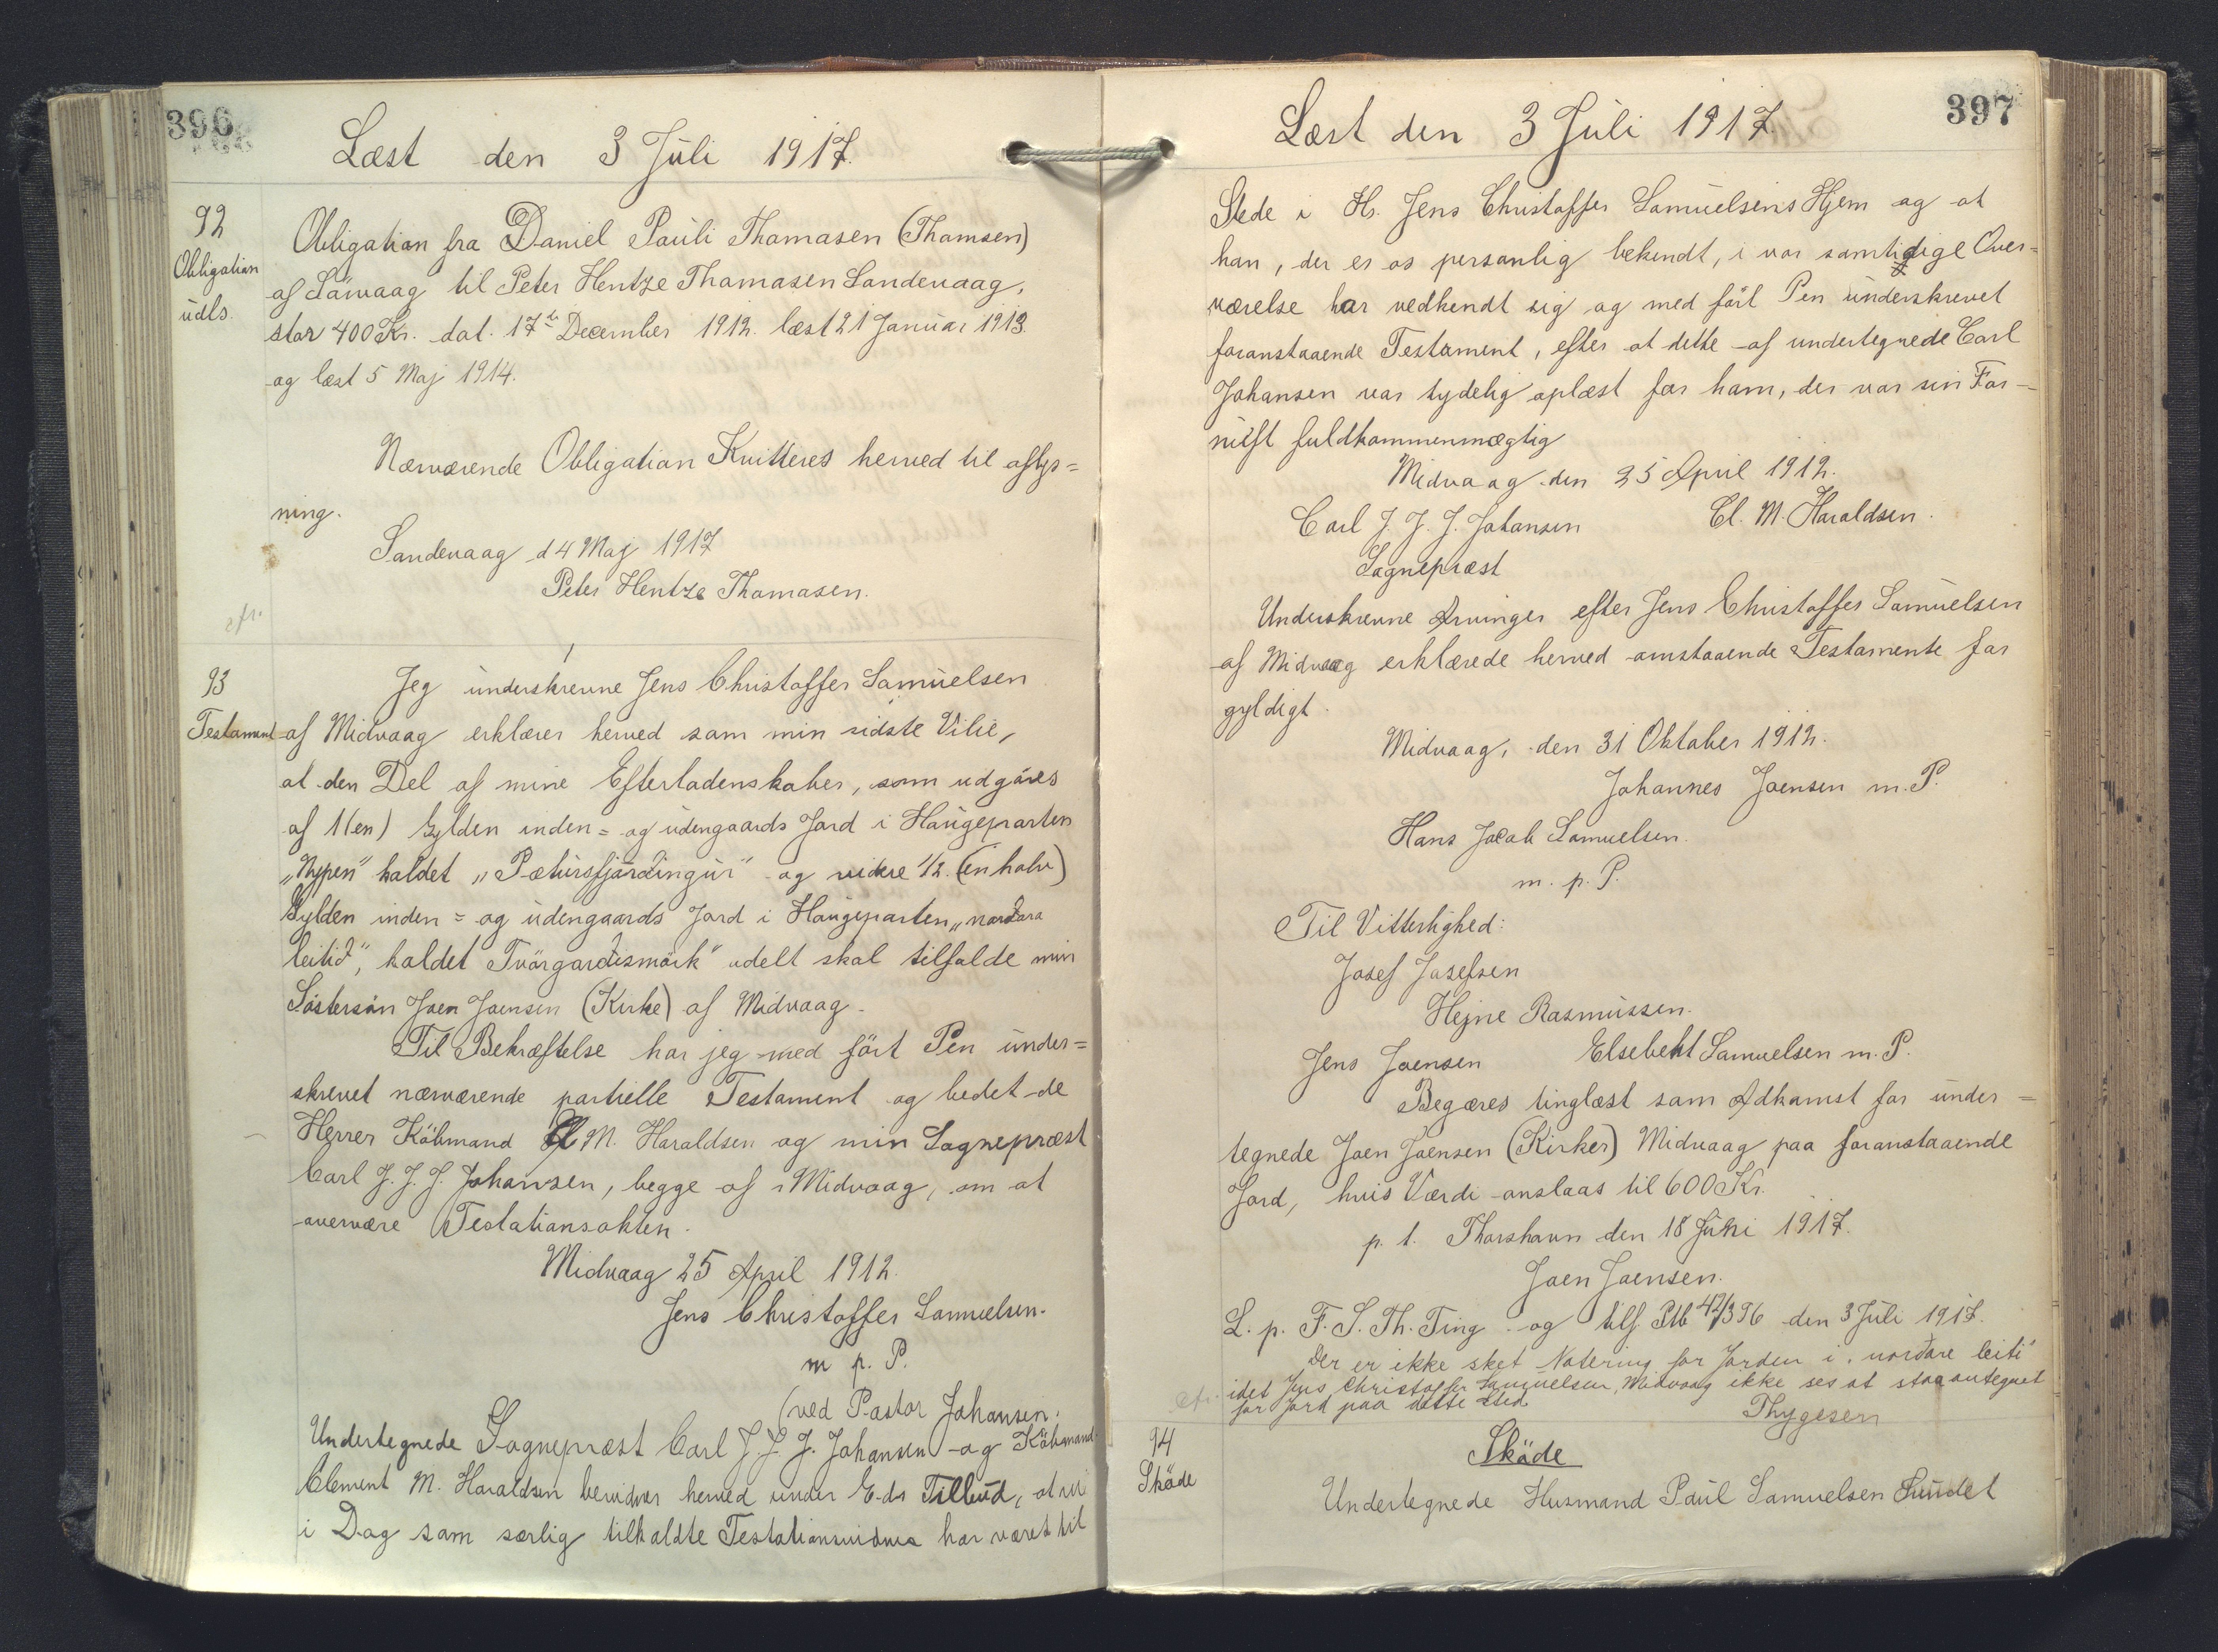 396
Læst den 3 Juli 1917.
92
Obligation
udls.
Obligation fra Daniel Pauli Thomasen (Thomsen)
af Sörvaag til Peter Hentze Thomasen Sandevaag,
stor 400 Kr. dat. 17de December 1912. læst 21 Januar 1913
og læst 5 Maj 1914.
Nærværende Obligation Kvitteres herved til aflys=
ning.
Sandevaag d 4 Maj 1917
Peter Hentze Thomasen.
cfr.
93
Testament
Jeg underskrevne Jens Christoffer Samuelsen
af Midvaag erklærer herved som min sidste Vilie,
at den Del af mine Efterladenskaber, som udgöres
af 1 (en) Gylden inden= og udengaards Jord i Haugeparten
„Nypen" kaldet „Pætursfjórdingur" og videre 1/2 (en halv)
Gylden inden= og udengaards Jord i Haugeparten „norðara
leitið", kaldet Tvörgarðismörk" udelt skal tilfalde min
Söstersön Joen Joensen (Kirke) af Midvaag.
Til Bekræftelse har jeg med fört Pen under=
skrevet nærværende partielle Testament og bedet de
Herrer Köbmand Cl M. Haraldsen og min Sognepræst
Carl J. J. J. Johansen, begge af Midvaag, om at
overvære Testationsakten.
Midvaag 25 April 1912.
Jens Christoffer Samuelsen.
m p. P.
(ved Pastor Johansen.
Undertegnede Sognepræst Carl J. J. J. Johansen og Köbmand
Clement M. Haraldsen bevidner herved under Eds Tilbud, at vi
i Dag som særlig tilkaldte Testationsvidner har været til
397
Læst den 3 Juli 1917
Stede i Hr. Jens Christoffer Samuelsens Hjem og at
han, der er os personlig bekendt, i vor samtidige Over=
værelse har vedkendt sig og med fört Pen underskrevet
foranstaaende Testament, efter at dette af undertegnede Carl
Johansen var tydelig oplæst for ham, der var sin For-
nuft fuldkommenmægtig
Midvaag den 25 April 1912.
Carl J. J. J. Johansen Cl. M. Haraldsen.
Sognepræst
Underskrevne Arvinger efter Jens Christoffer Samuelsen
af Midvaag erklærede herved omstaaende Testamente for
gyldigt.
Midvaag, den 31 Oktober 1912.
Johannes Joensen m. P.
Hans Jacob Samuelsen.
m. p. P.
Til Vitterlighed:
Josef Josefsen
Hejne Rasmussen.
Jens Joensen Elsebeht Samuelsen m. P.
Begæres tinglæst som Adkomst for under=
tegnede Joen Joensen (Kirker) Midvaag paa foranstaaende
Jord, hvis Værdi anslaas til 600 Kr.
p. t. Thorshavn den 18 Juni 1917.
Joen Joensen.
L. p. F. S. Th. Ting og tilf. Ptb 42/396 den 3 Juli 1917.
Der er ikke sket Notering for Jorden i „norðare leiti"
idet Jens Christoffer Samuelsen, Midvaag ikke ses at staa antegnet
for Jord paa dette Sted
Thygesen
cfr.
94
Sköde
Sköde
Undertegnede Husmand Paul Samuelsen Sundet